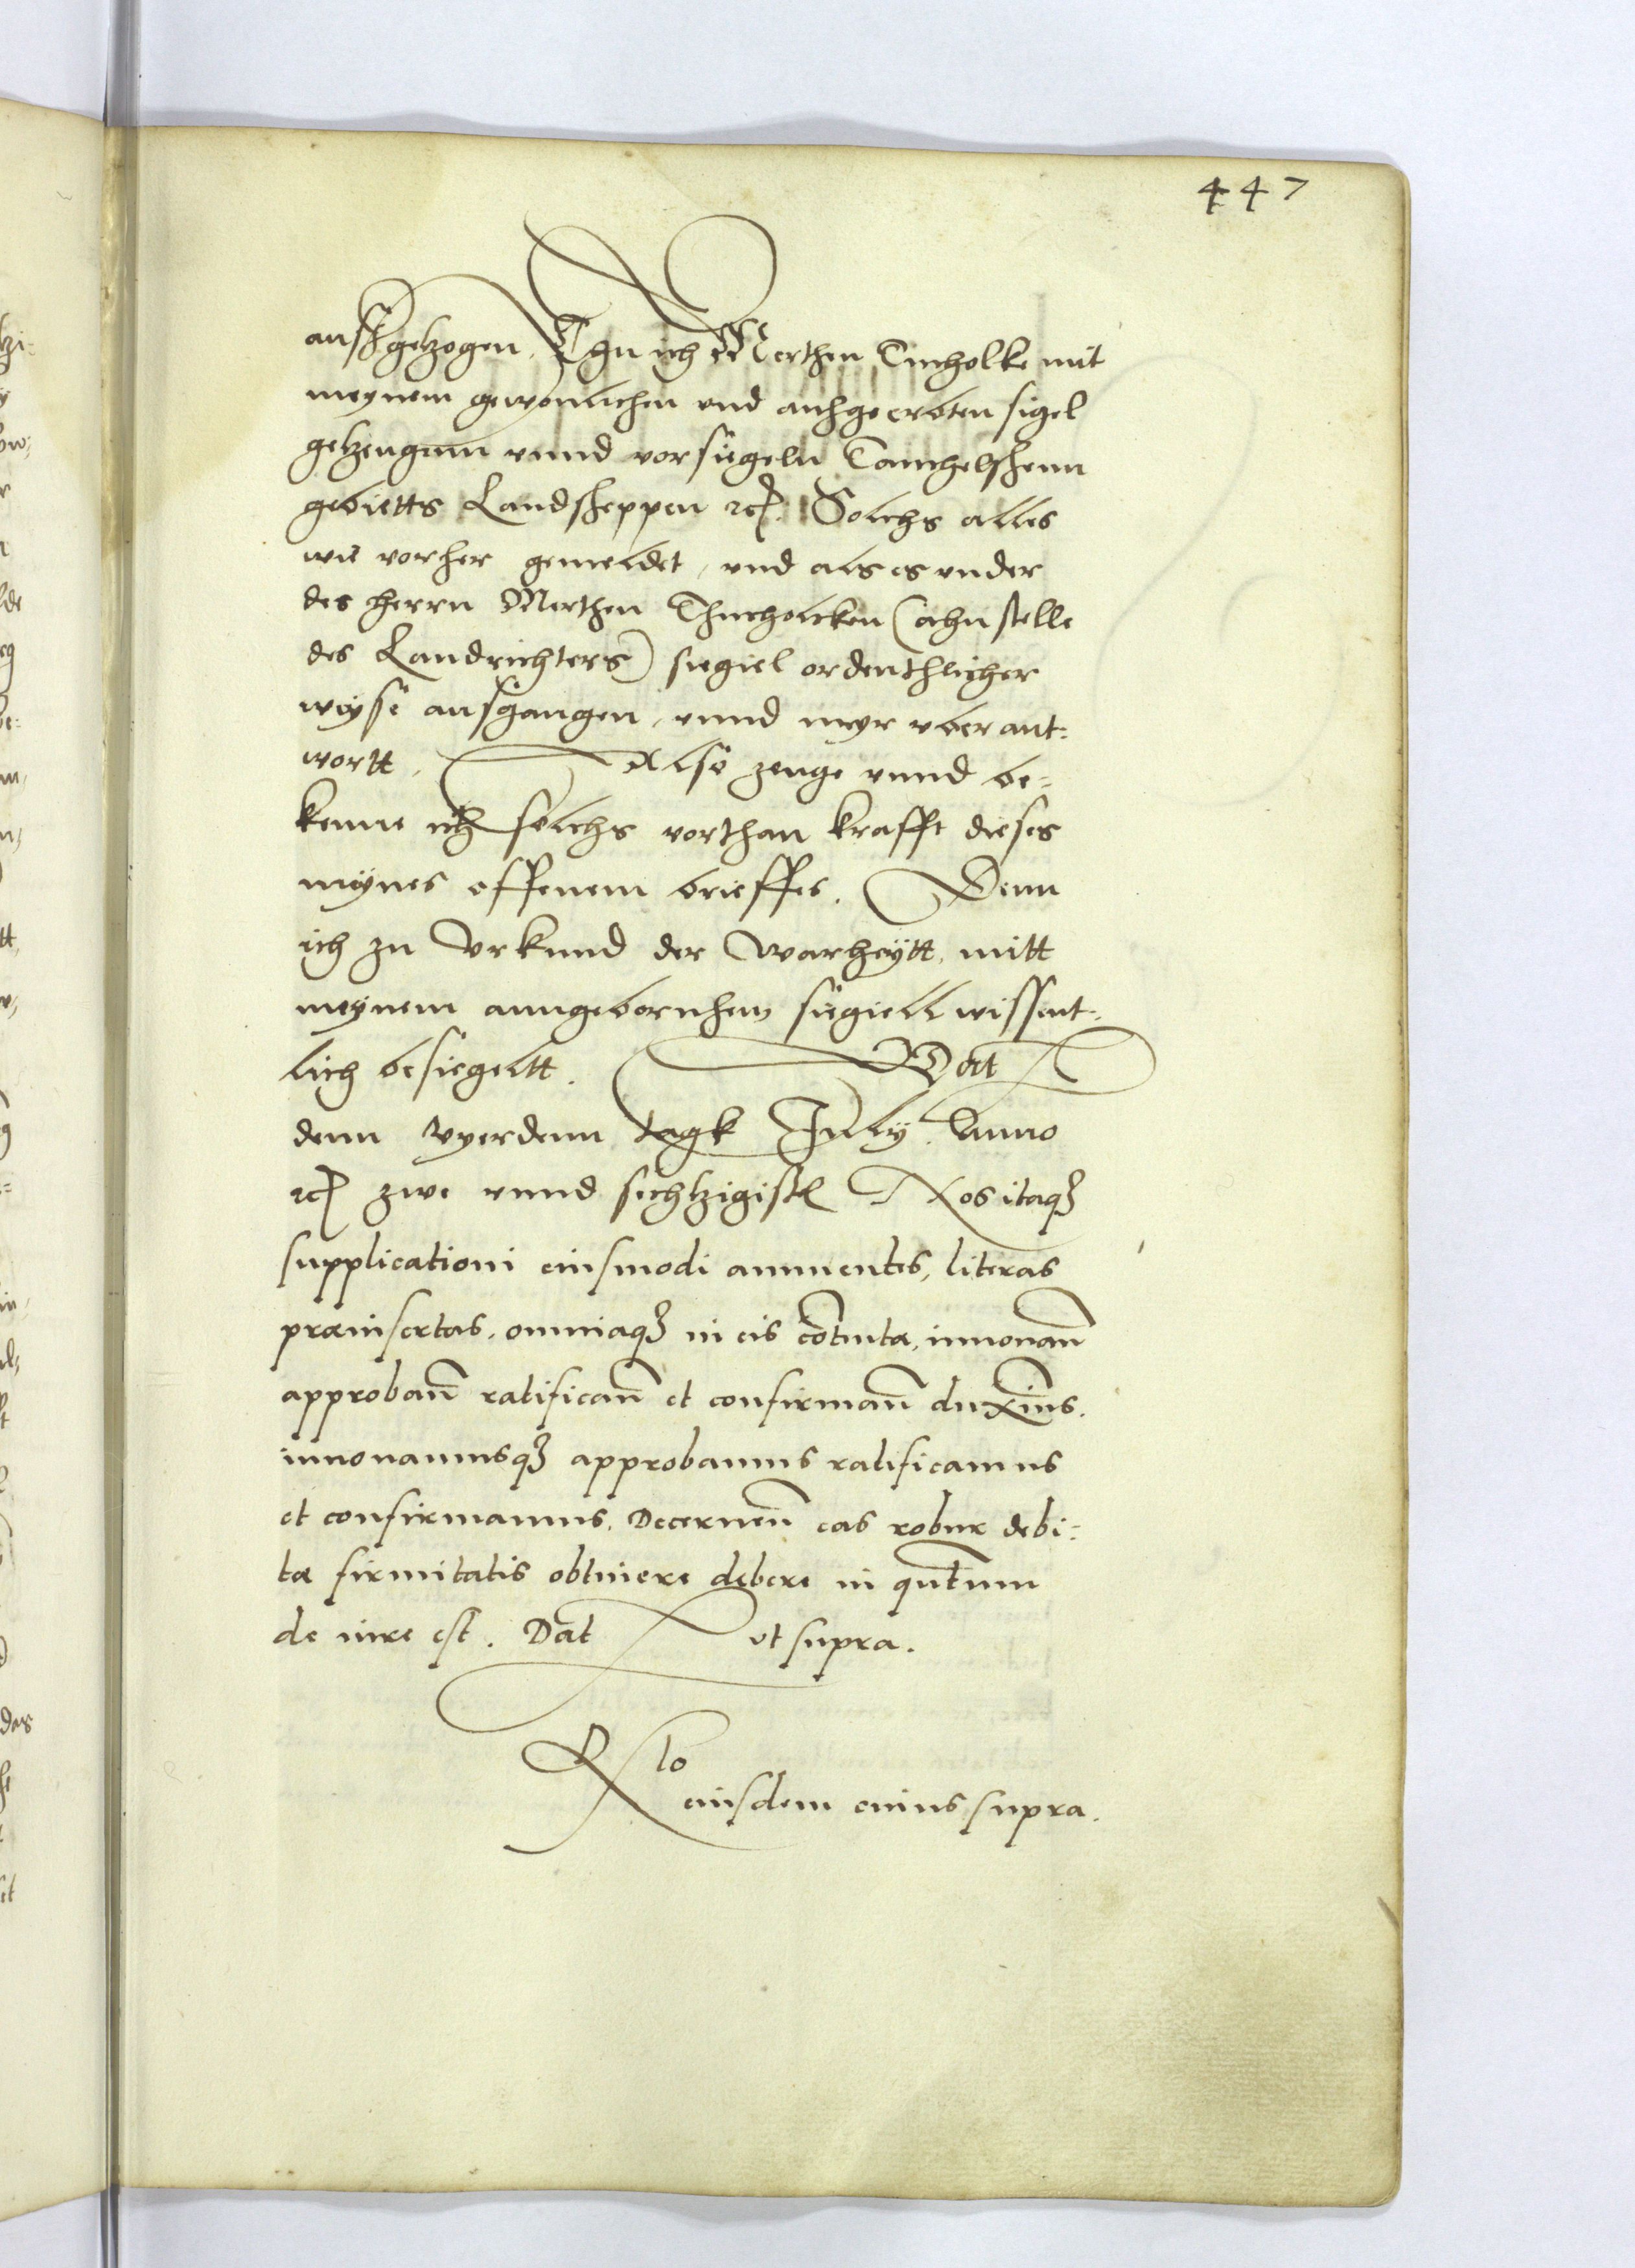 447
außgetzogen, Thu ich Merthen Tucholke mit
meynem gewonlichen vnd anhgeerbten sigel
getzeugenn vnnd vorsiegeln Tauchelschenn
gebietts Landscheppen ꝛc. Solchs alles
wie vorher gemeldet, vnd als es vnder
des herrn Merthen Thucholcken (ahn stelle
des Landrichters) siegiel ordenthlicher
weyse ausgangen, vnnd meyr vberant=
wortt. Also zeuge vnnd be=
kenne ich solchs vorthan krafft dieses
meynes offenem brieffes. Denn
ich zu Vrkund der Warheytt, mitt
meynem anngebornhem siegiell wissent=
lich besiegeltt. Dat
denn vyerdenn tagk July Anno
ꝛc zwe vnnd sechtzigist. Nos itaqȝ
supplicationi eiusmodi annuentes, literas
præinsertas, omniaqȝ in eis cōtenta, innouan̄
approban̄ ratifican̄ et confirman̄ duxim̄s.
innouamusqȝ approbamus ratificamus
et confirmamus, Decernen̄ eas robur debi=
tæ firmitatis obtinere debere in qūtum
de iure est. Dat vt supra.
Rlo
eiusdem cuius supra.